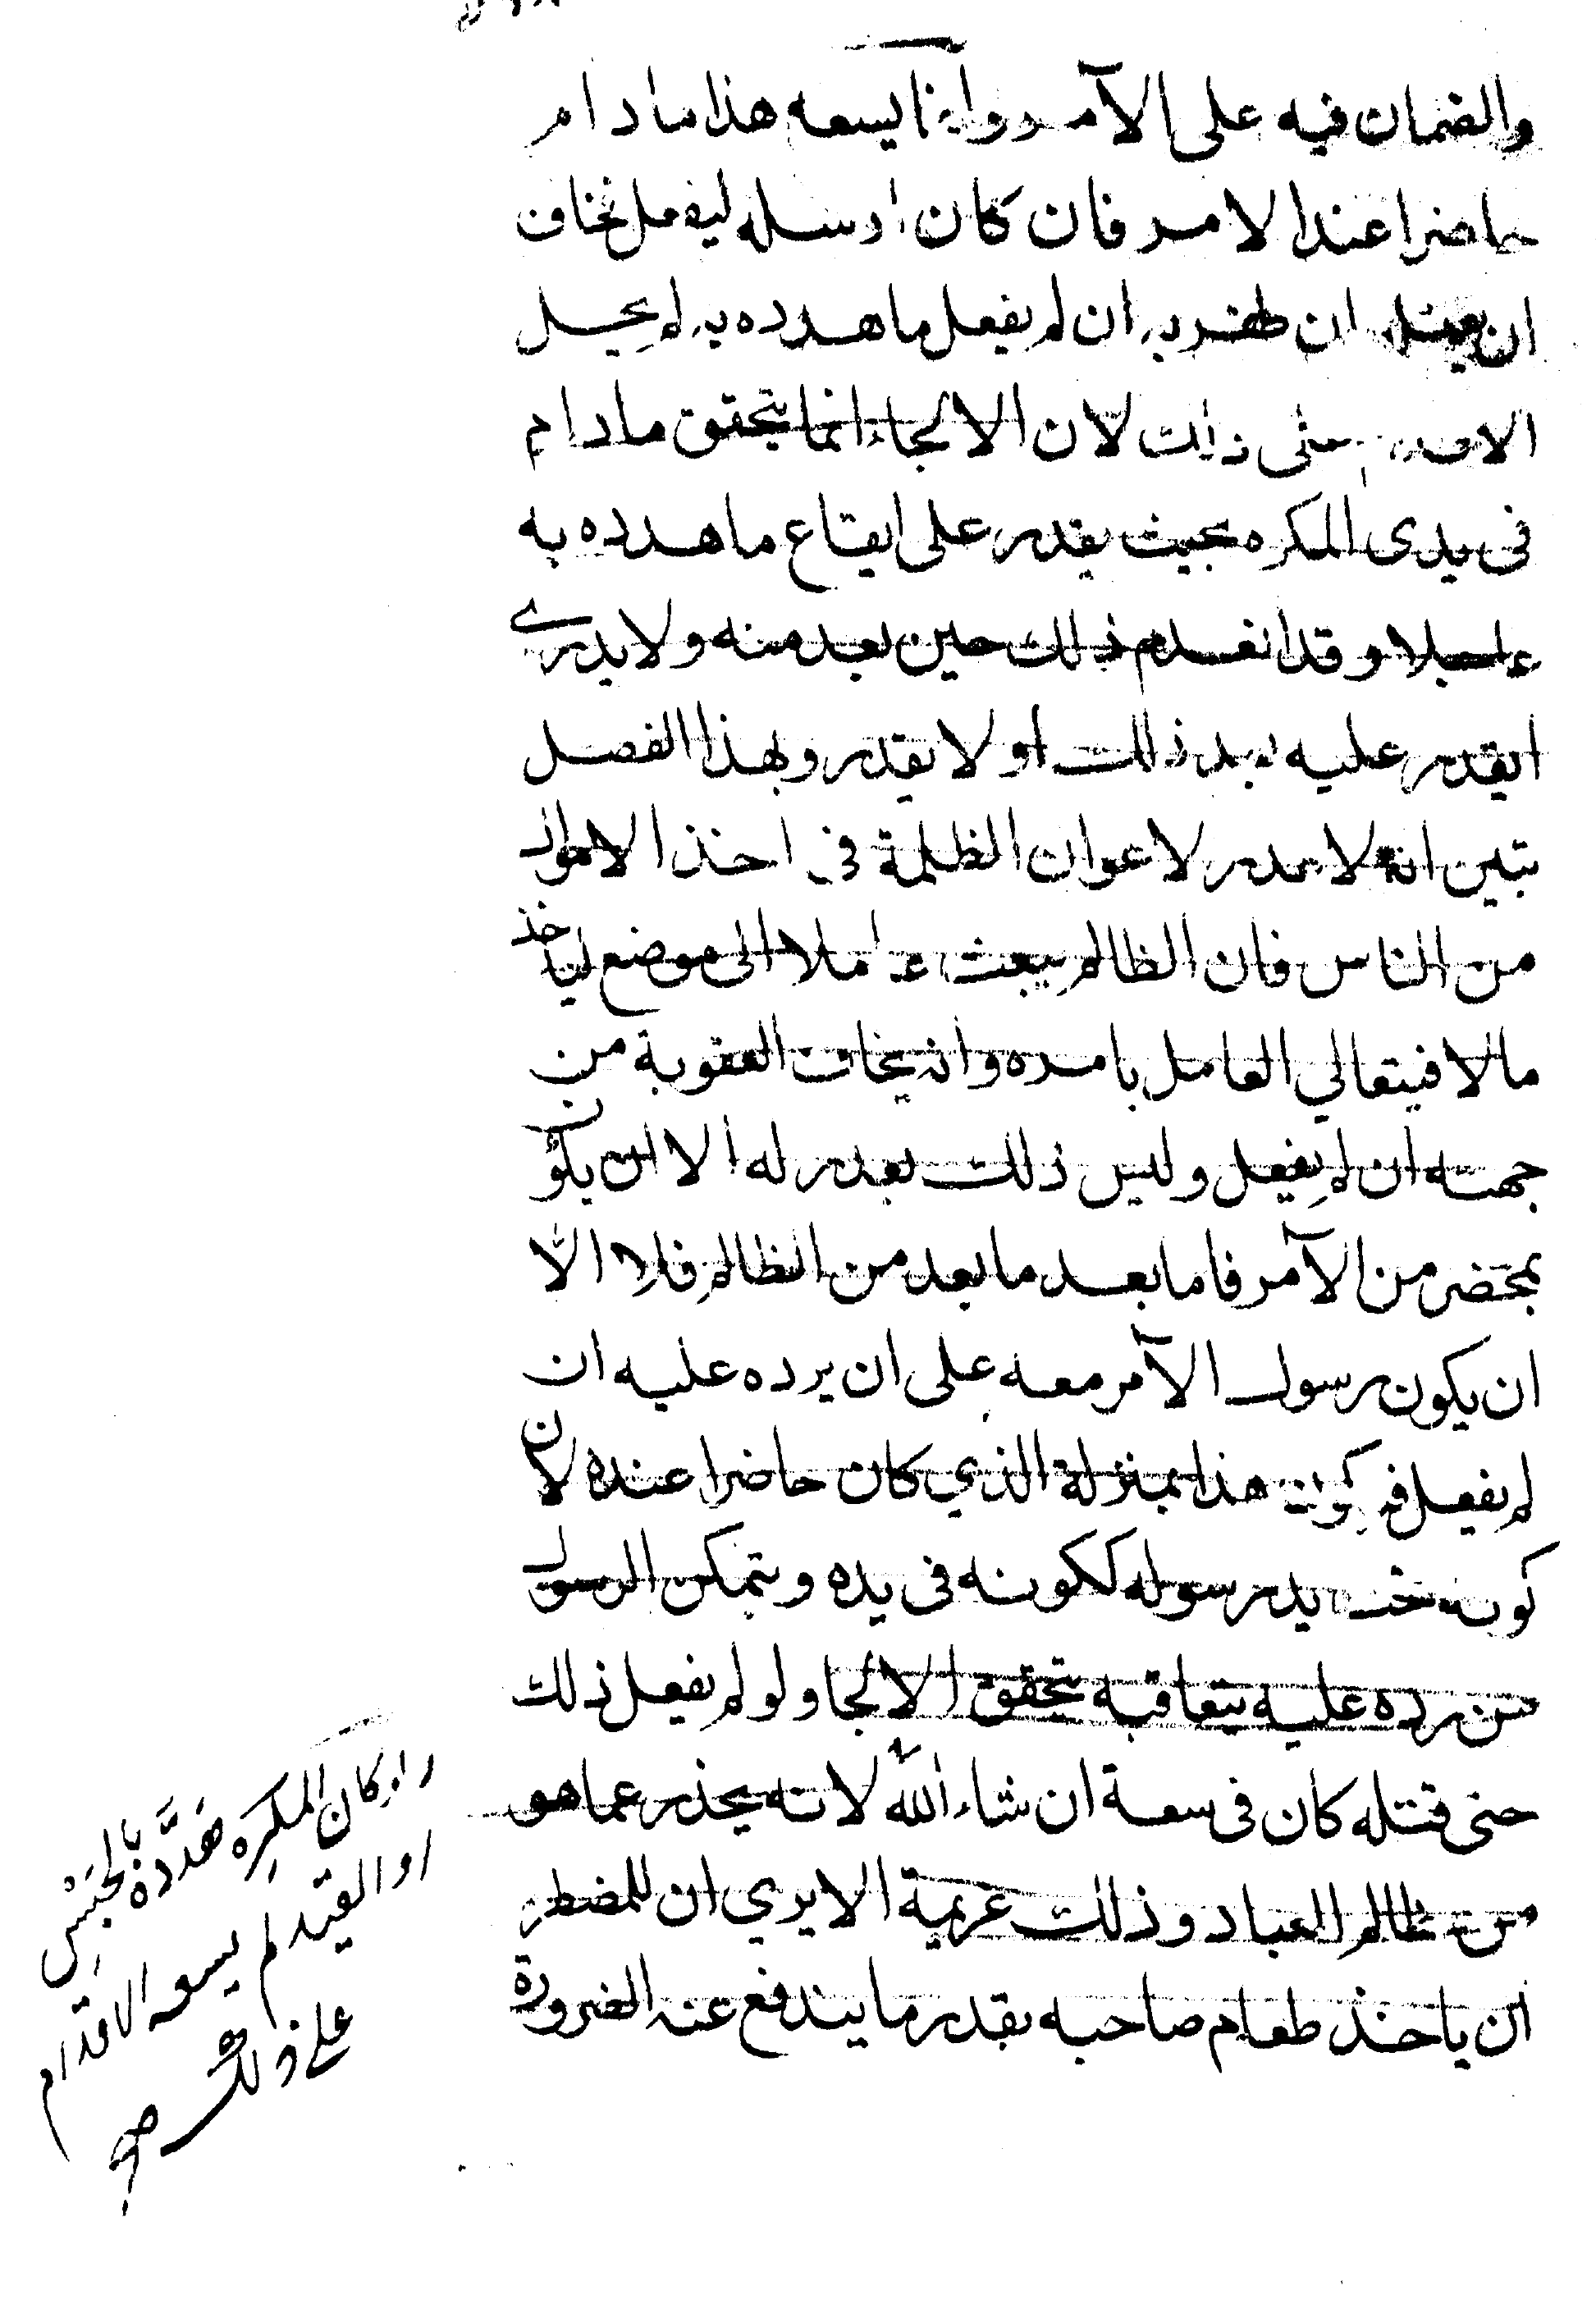 والضمان فيه على الآمر وانما يسعه هذا ما دام
حاضرا عند الامر فان كان ارسله ليفعل فخاف
ان يقتله ان ظفر به ان لم يفعل ما هدده به لم يحل
الاقدام على ذلك لان الالجاء انما يتحقق ما دام
فى يدى المكره بحيث يقدر على ايقاع ما هدده به
عاجلا وقد انعدم ذلك حين بعد منه ولا يدرى
ايقدر عليه بعد ذلك او لا يقدر وبهذا الفصل
تبين انه لا عذر لاعوان الظلمة فى اخذ الاموال
من الناس فان الظالم يبعث عاملا الى موضع لياخذ
مالا فيتعالي العامل بامره وانه يخاف العقوبة من
جهته ان لم يفعل وليس ذلك بعذر له الا ان يكون
بمحضر من الآمر فاما بعد ما بعد من الظالم فلا الا
ان يكون رسول الآمر معه على ان يرده عليه ان
لم يفعل فيكون هذا بمنزلة الذي كان حاضرا عنده لان
كونه تحت يد رسوله ككونه فى يده ويتمكن الرسول
من رده عليه يتعاقبه يتحقق الالجا ولو لم يفعل ذلك
حتى قتله كان فى سعة ان شاء الله لانه يحذر عما هو
من مظالم العباد وذلك عزيمة الا يري ان للمضطر
ان ياخذ طعام صاحبه بقدر ما يندفع عنه الضرورة
وان كان المكرِه هَدَّده بالحبْس
او القيد لم يسعه الاقدام
على ذلك صح